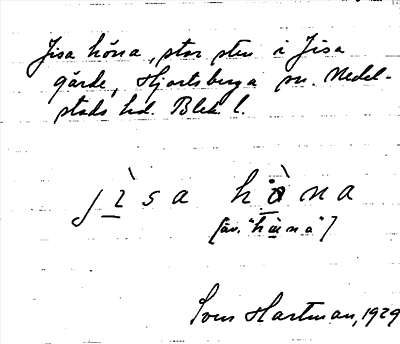 Jisa höna, stor sten i Jisa
gärde, Hjortsberga sn. Medel-
stads hd. Blek. l.
jìsa hòna
[äv. "hɯna"]
Sven Hartman, 1929